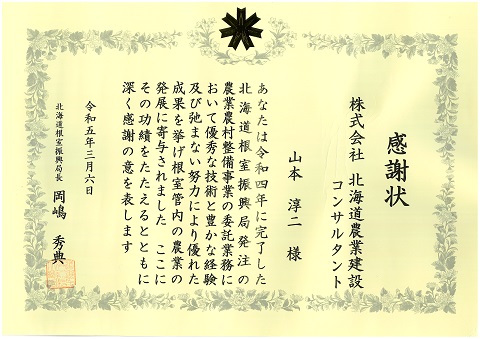 感謝状
株式会社 北海道農業建設
コンサルタント
山本 淳二 様
あなたは令和四年に完了した
北海道根室振興局発注の
農業農村整備事業の委託業務に
おいて優秀な技術と豊かな経験
及び弛まない努力により優れた
成果を挙げ根室管内の農業の
発展に寄与されました ここに
その功績をたたえるとともに
深く感謝の意を表します
令和五年三月六日
北海道根室振興局長 岡嶋 秀典